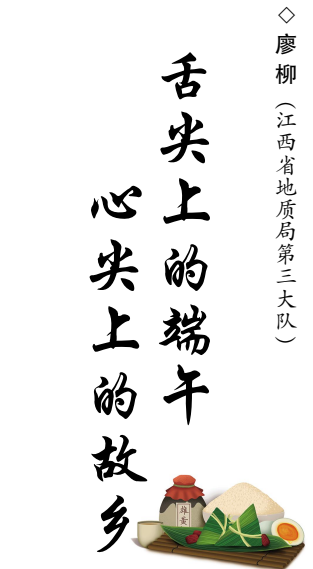 ◇廖柳（江西省地质局第三大队）
舌尖上的端午
心尖上的故乡
雄黄